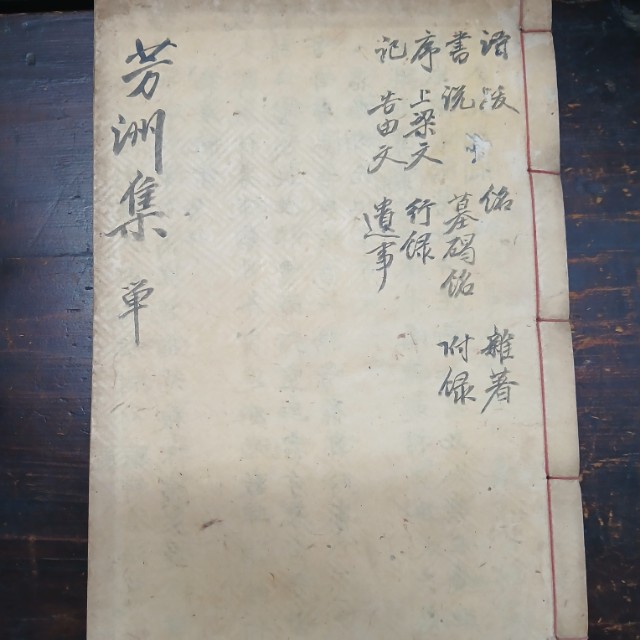 詩 跋 銘 雜著
書 說 墓碣銘 附錄
序 上梁文 行錄
記 告由文 遺事
芳洲集 単